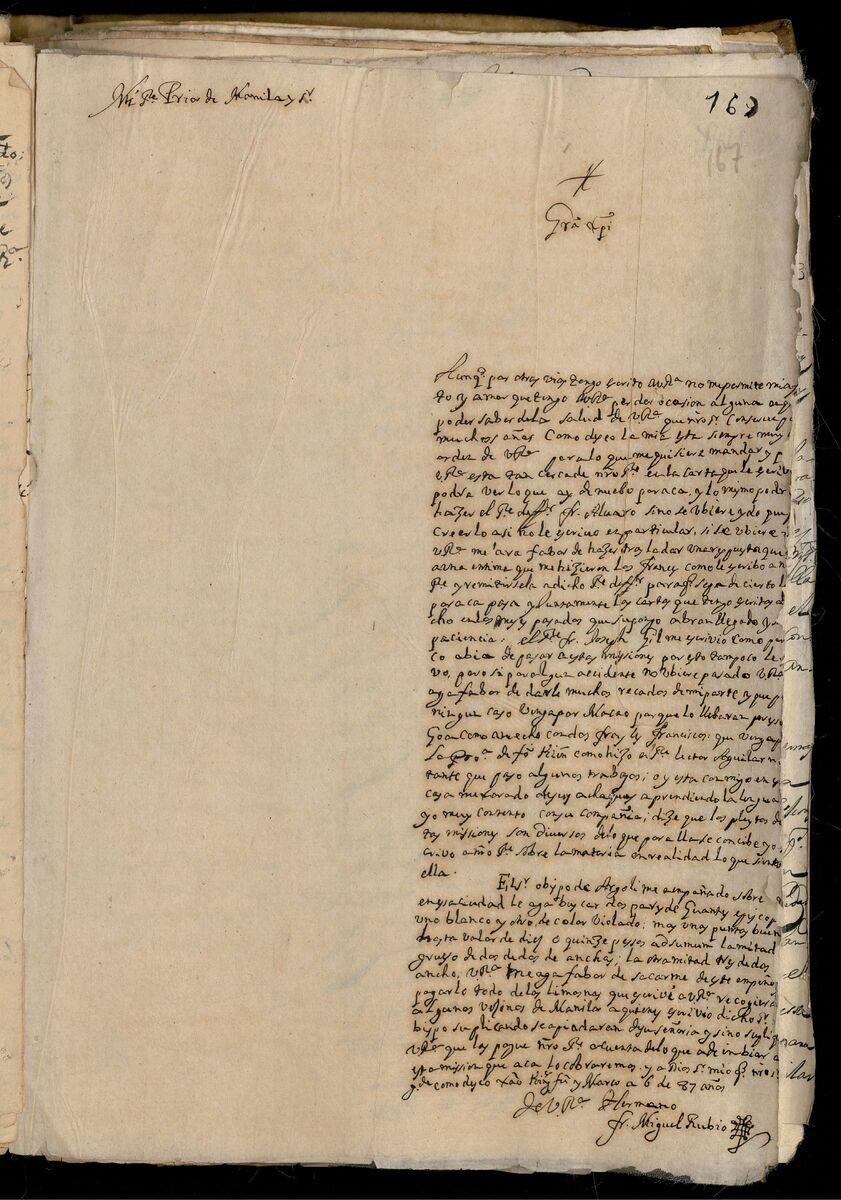 Mi Pe Prior de Manila y Sr.
167
167
Gra Xpi
Aunq. por otras vias tengo escrito a V Ra no me permite mi a
to y amor que tengo a V Ra perder ocasion alguna
poder saber de la salud de V Ra que nro Sr. Conserue
muchos años Como deseo la mia esta siempre muy
orden de V Ra para lo que me quisiere mandar y
V Ra esta tan cerca de nro Pe en la carta que le escrivo
podra ver lo que ay de nuebo por aca, y lo mismo podra
hazer el Pe fr. Alvaro sino se ubiere ydo que
Creerlo asi no le escrivo en particular, si se ubiere
V Ra me ara fabor de hazer trasladar una respuesta que
me hizieron los Frances como le escribo a n
Pe y remitirsela a dicho Pe para q. sepa de cierto l
por aca pasa y Juntamente las cartas que tengo escritas a
cho en los meses pasados que supongo abran llegado y
paciencia: el Pe fr. Joseph Gil me escrivio como
co abia de pasar a estas missiones por esto tampoco le
vo, pero si por algun accidente no ubiere pasado V Ra
aga fabor de darle muchos recados de mi parte y que
ningun caso venga por Macao porque lo llebaran
Goa como an echo con dos Frayles Franciscos: que venga
la Proa. de fo Kien como hizo el Pe lector Aguilar n
tante que paso algunos trabajos; oy esta conmigo en
casa mexorado de sus achaques aprendiendo la lengua
yo muy contento con su compañia; dize que los pleytos de
tas missiones son diversos de lo que por alla se concibe yo
crivo a nro Pe sobre la materia en realidad lo que siento
ella.
El Sr. obispo de Argoli me a empeñado sobre
en esa ciudad le aga buscar dos pares de Guantes episcop
uno blanco y otro de color violado; mas unas puntas buen
hasta valor de dies o quinze pessos ad sumum la mitad
grueso de dos dedos de anchas; la otra mitad tres dedos
ancho, V Ra me aga fabor de sacarme de este empeño
pagarlo todo de las limosnas que escrive a V Ra recogiera
algunos vesinos de Manila a quienes escrivio dicho Sr.
bispo suplicando se apiadaran de su señoria y sino suplico
V Ra que los pague nro Pe a cuenta de lo que a de imbiar a
esta mission que aca lo cobraremos. y a Dios Sr. mio q. nro Sr.
g.de como deseo y Março a 6 de 87 años
De V. Ra. Hermano
fr. Miguel Rubio